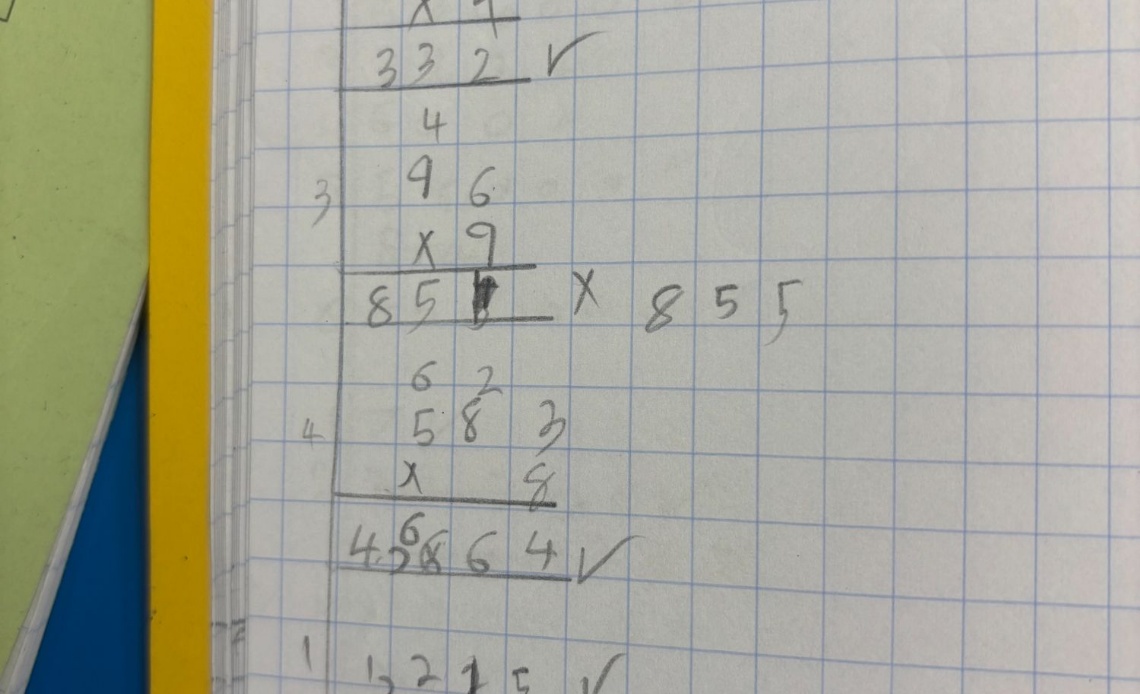 x
3 3 2 ✓
4
3 9 6
x 9
8 5 x 8 5 5
6 2
4 5 8 3
x 8
4 6 6 4 ✓
1 1 2 1 5 ✓